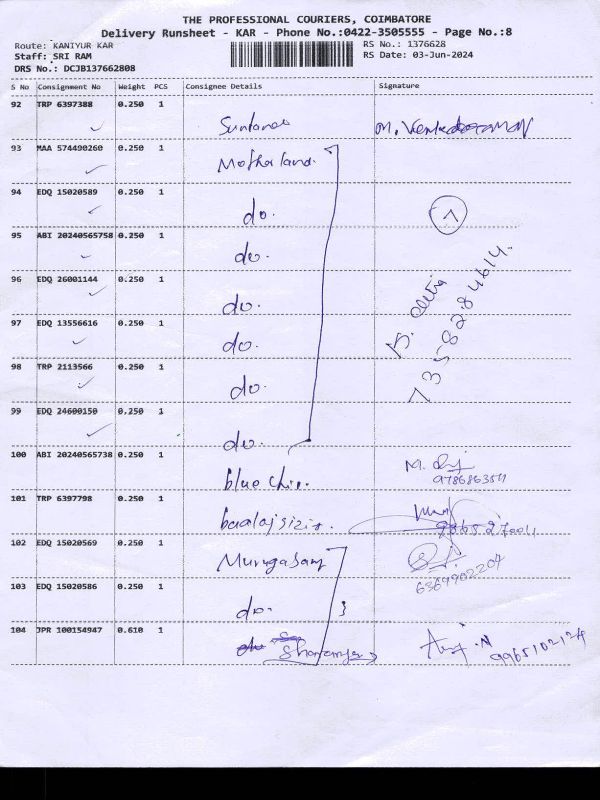 THE PROFESSIONAL COURIERS, COIMBATORE
Delivery Runsheet - KAR - Phone No.:0422-3505555 - Page No.:8
Route: KANIYUR KAR
RS No.: 1376628
Staff: SRI RAM
RS Date: 03-Jun-2024
DRS No.: DCJB137662808
S No Consignment No Weight PCS Consignee Details Signature
92 TRP 6397388 0.250 1
93 MAA 574490260 0.250 1
Motherland.
94 EDQ 15020589 0.250 1
do.
7
95 ABI 20240565758 0.250 1
do.
96 EDQ 26001144 0.250 1
do.
97 EDQ 13556616 0.250 1
do.
98 TRP 2113566 0.250 1
do.
7358284614.
99 EDQ 24600150 0.250 1
do.
100 ABI 20240565738 0.250 1
blue chip. M.
101 TRP 6397798 0.250 1
102 EDQ 15020569 0.250 1
Murugasamy
6369902207
103 EDQ 15020586 0.250 1
do.
104 JPR 100154947 0.610 1
9965102124